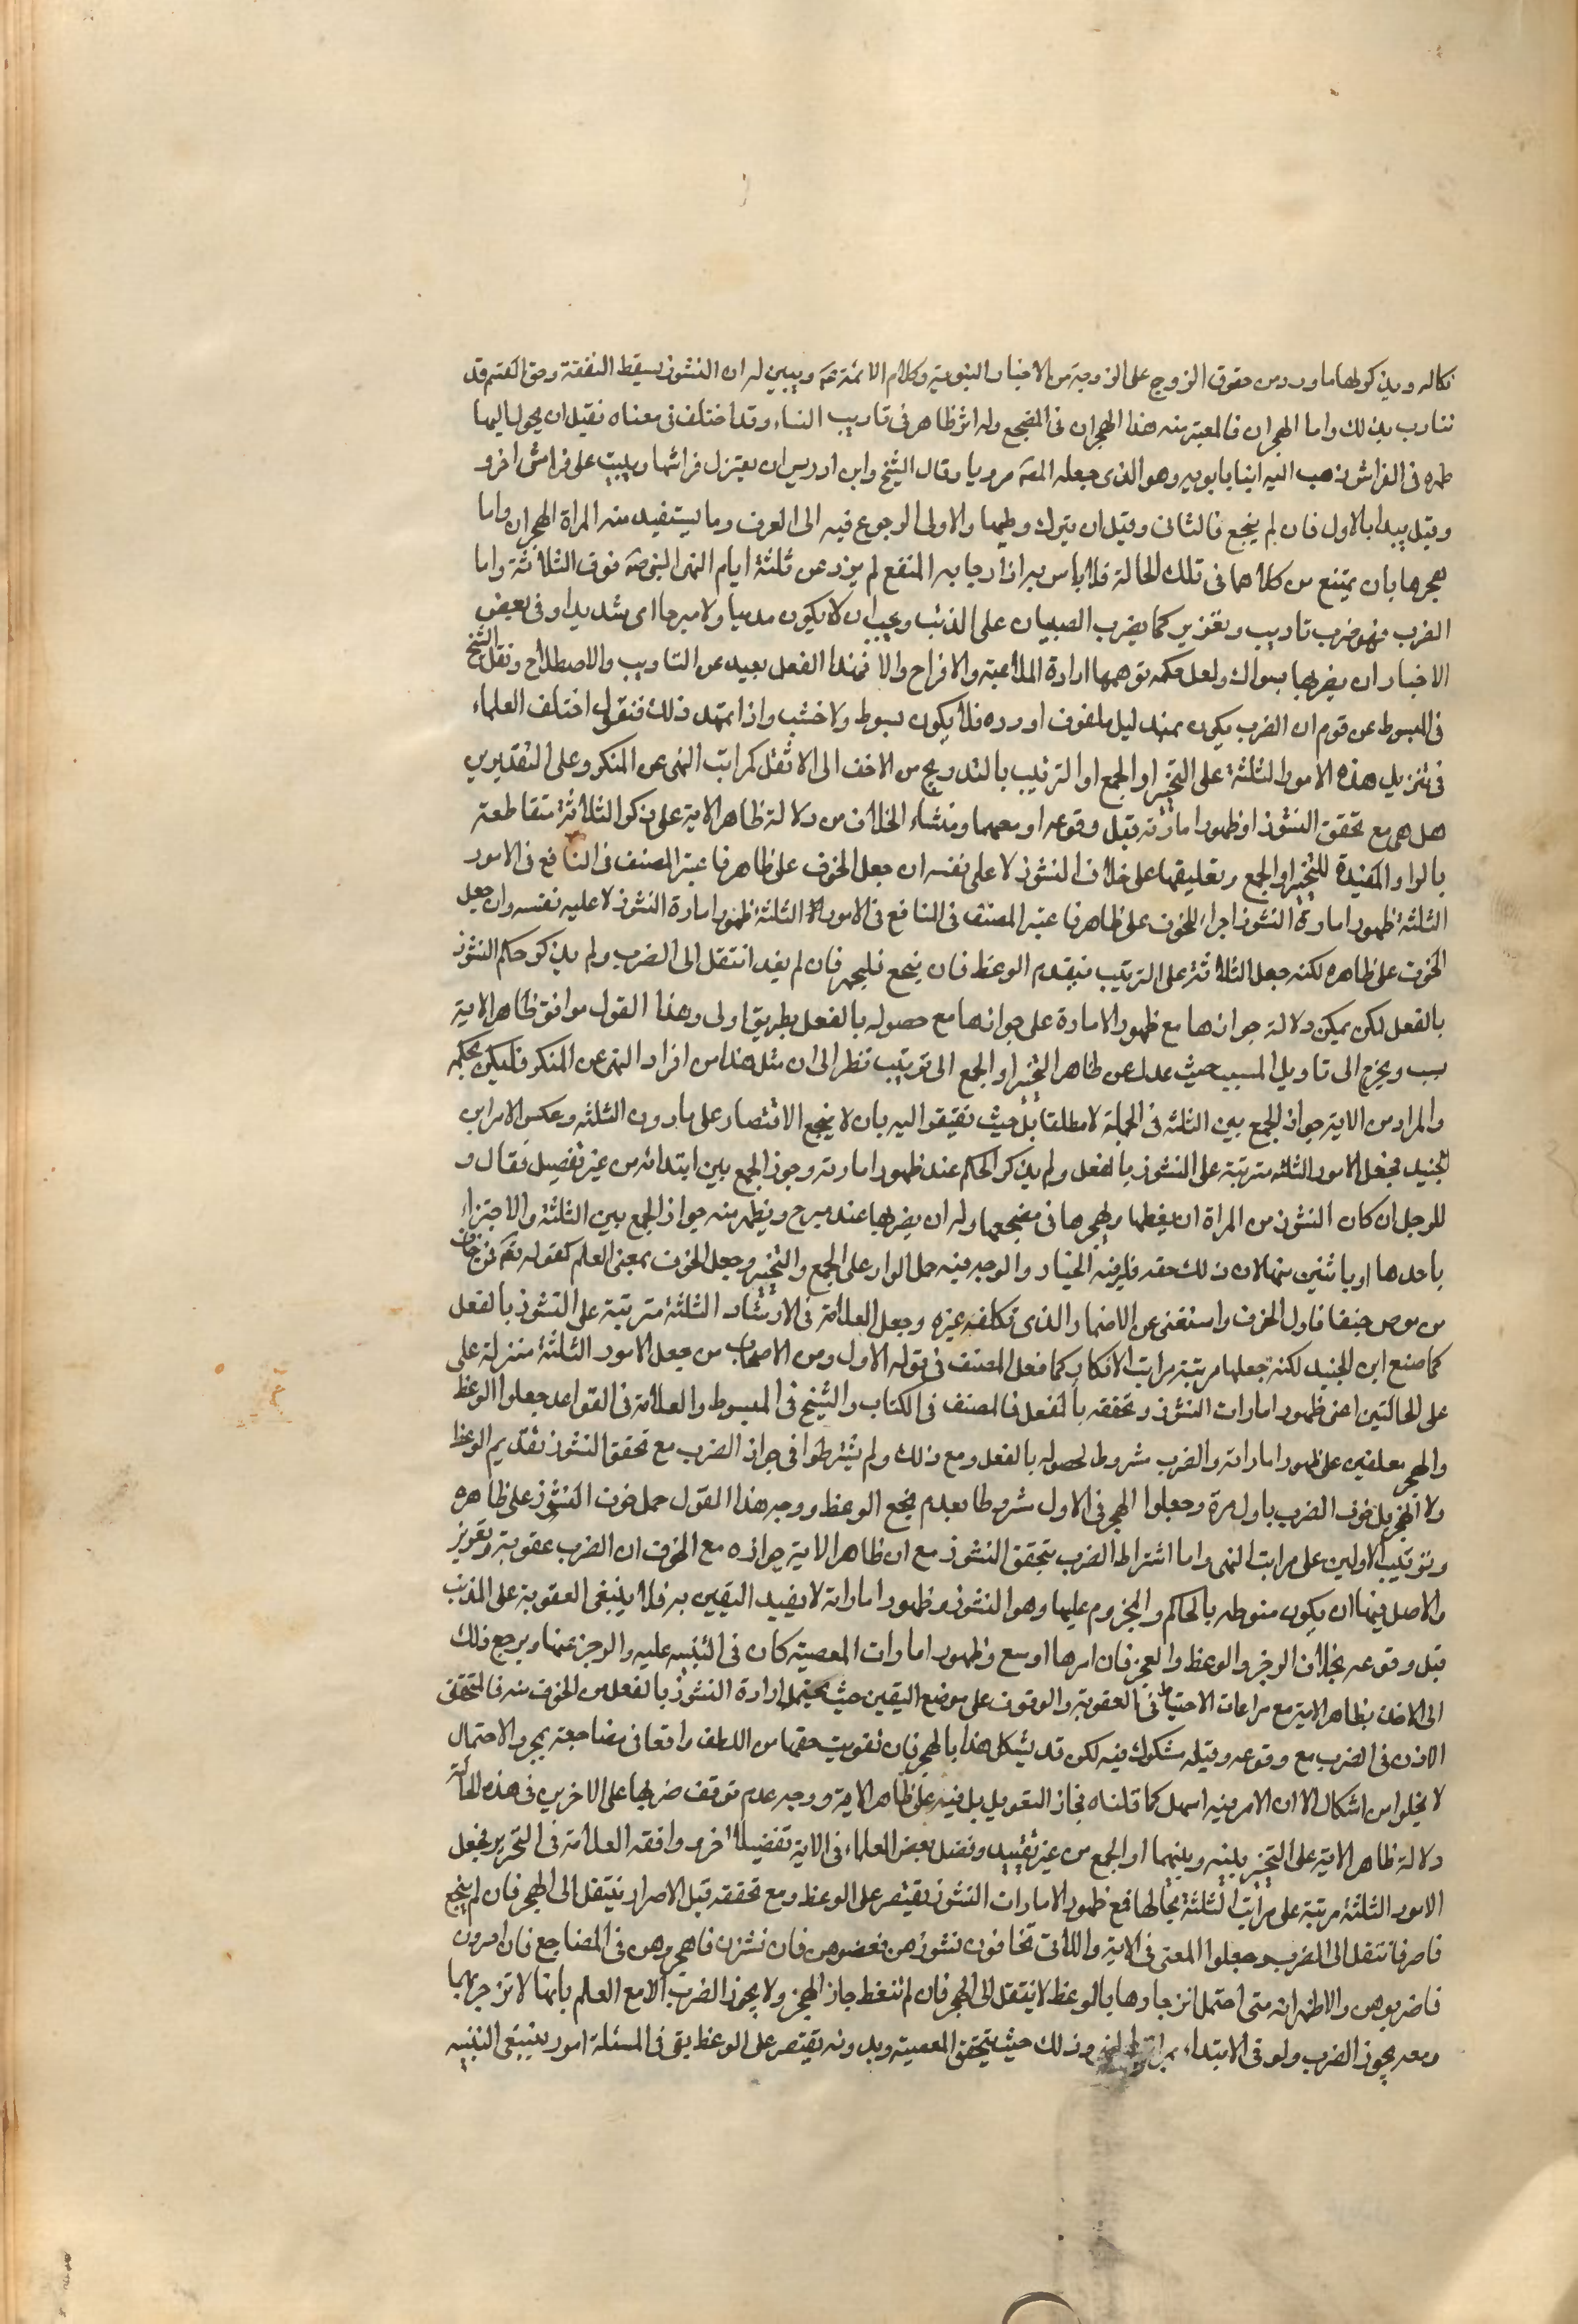 نكاله ويذكر لها ما ورد من حقوق الزوج على الزوجة من الاخبار النبوية وكلام الائمة عم ويبين لها ان النشوز يسقط النفقة وحق القسم قد
تتادب بذلك واما الهجران فالمعتبر منه هذا الهجران فى المضجع وله اثر ظاهر فى تاديب النساء وقد اختلف فى معناه فقيل ان يحول اليها
ظهره فى الفراش ذهب اليه ابنا بابويه وهو الذى جعله المصه مرويا وقال الشيخ وابن ادريس ان يعتزل فراشها ويبيت على فراش اخر و
وقيل يبدا بالاول فان لم ينجع فالثانى وقيل ان يترك وطيها والاولى الرجوع فيه الى العرف وما يستفيد منه المراة الهجران واما
هجرها بان يمتنع من كلامها فى تلك الحالة فلا باس به اذا رجا به النفع لم يزد عن ثلثة ايام النهى النبى صه فوق الثلاثة واما
الضرب فهو ضرب تاديب وتعزير كما يضرب الصبيان على الذنب ويجب ان لا يكون مدميا ولا مبرحا اى شديدا وفى بعض
الاخبار ان يضربها بسواك ولعل حكمه توهمها ارادة الملاعبة والافراح والا فهذا الفعل بعيد عن التاديب والاصطلاح ونقل الشيخ
فى المبسوط عن قوم ان الضرب يكون بمنديل ملفوف او درة فلا يكون بسوط ولا خشب واذا تمهد ذلك فنقول اختلف العلماء
فى تنزيل هذه الامور الثلثة على التخيير او الجمع او الترتيب بالتدريج من الاخف الى الاثقل كمراتب النهى عن المنكر وعلى التقديرين
هل هى مع تحقق النشوز او ظهور امارته قبل وقوعه او معهما ومنشاء الخلاف من دلالة ظاهر الاية على ذكر الثلاثة متقاطعة
بالواو المفيدة للتخيير او الجمع وتعليقها على خلاف النشوز لا على نفسه ان جعل الخوف على ظاهرفا عتبر المصنف فى النافع فى الامور
الثلثة ظهور امارة النشوز اجراء للخوف على ظاهرفا عتبر المصنف فى النافع فى الامور الثلثة ظهور امارة النشوز لا عليه نفسه وان جعل
الخوف على ظاهره لكنه جعل الثلاثة على الترتيب فيقدم الوعظ فان ينجع فليهجر فان لم يفد انتقل الى الضرب ولم يذكر حكم النشوز
بالفعل لكن يمكن دلالة جوازها مع ظهور الامارة على جوازها مع حصوله بالفعل بطريق اولى وهذا القول موافق ظاهر الاية
سبب ويخرج الى تاويل المسبب حيث عدل عن ظاهر التخيير او الجمع الى ترتيب نظر الى ان مثل هذا من افراد النهى عن المنكر فليكن بحكمه
والمراد من الاية جواز الجمع بين الثلثه فى الجملة لا مطلقا بل حيث تفتقر اليه بان لا ينجع الاقتصار على ما دون الثلثه وعكس الامر ابن
الجنيد فجعل الامور الثلثه مترتبة على النشوز بالفعل ولم يذكر الحكم عند ظهور امارته وجوز الجمع بين ابتدائه من غير تفصيل فقال و
للرجل ان كان النشوز من المراة ان يعظها ويهجرها فى مضجعها وله ان يضربها عند مبرح ويظهر منه جواز الجمع بين الثلثة والاجتزاء
باحدها او باثنين منها لان ذلك حقه فله فيه الخيار والوجه فيه حمل الواو على الجمع والتخيير وجعل الخوف بمعنى العلم كقوله تعم فمن خاف
من موص جنفا فاول الخوف واستغنى عن الاضمار الذى تكلفه غيره وجعل العلامة فى الارشاد الثلثة مترتبة على النشوز بالفعل
كما صنع ابن الجنيد لكنه جعلها مرتبة مراتب الانكار كما فعل المصنف فى قوله الاول ومن الاصحاب من جعل الامور الثلثة منزلة على
على الحالتين اعنى ظهور امارات النشوز وتحققه بالفعل فالمصنف فى الكتاب والشيخ فى المبسوط والعلامة فى القواعد جعلوا الوعظ
والهجر معلقين على ظهور اماراته والضرب مشروط لحصوله بالفعل ومع ذلك ولم يشترطوا فى جواز الضرب مع تحقق النشوز تقديم الوعظ
ولا الهجر بل خوف الضرب باول مرة وجعلوا الهجر فى الاول مشروطا بعدم نجع الوعظ ووجه هذا القول حمل خوف النشوز على ظاهره
وترتيب الاولين على مراتب النهى واما اشتراط الضرب بتحقق النشوز مع ان ظاهر الاية جوازه مع الخوف ان الضرب عقوبة وتعزير
والاصل فيها ان يكون منوطه بالحاكم والمجزوم عليها وهو النشوز وظهور اماراته لا يفيد اليقين به فلا ينبغى العقوبة على الذنب
قبل وقوعه بخلاف الوجز والوعظ والعجز فان امرها اوسع وظهور امارات المعصية كان فى التنبيه عليه والوجز عنها ويرجع ذلك
الى الاخذ بظاهر الاية مع مراعات الاحتياط فى العقوبة والوقوف على موضع اليقين حيث يحتمل ارادة النشوز بالفعل من الخوف منه فالمتحقق
الاذن فى الضرب مع وقوعه وقبله مشكوك فيه لكن قد يشكل هذا بالهجر فان تفويت حقها من اللطف واقعا فى مضاجعته بمجرد الاحتمال
لا يخلوا من اشكال الا ان الامر فيه اسهل كما قلناه فجاز التعويل بل فيه على ظاهر الاية ووجه عدم توقف ضربها على الاخرين فى هذه الحالة
دلالة ظاهر الاية على التخيير بينه وبينهما او الجمع من غير تقييد وفضل بعض العلماء فى الاية تفضيلا اخر وافقه العلامة فى التحرير فجعل
الامور الثلثة مرتبة على مراتب الثلثة بحالها فمع ظهور الامارات النشوز يقتصر على الوعظ ومع تحققه قبل الاصرار ينتقل الى الهجر فان لم ينجع
فاصرفا تنتقل الى الضرب وجعلوا المعنى فى الاية واللاتى تخافون نشوزهن فعضوهن فان نشزن فاهجروهن فى المضاجع فان اصرون
فاضربوهن والاظهر انه متى احتمل انزجارها بالوعظ لا ينتقل الى الهجر فان لم تتعظ جاز الهجر ولا يجوز الضرب الا مع العلم بانها لا تنزجر بهما
ومعه يجوز الضرب ولو فى الابتداء وذلك حيث يتحقق المعصية وبدونه يقتصر على الوعظ بقى فى المسئلة امور ينبغى التنبيه